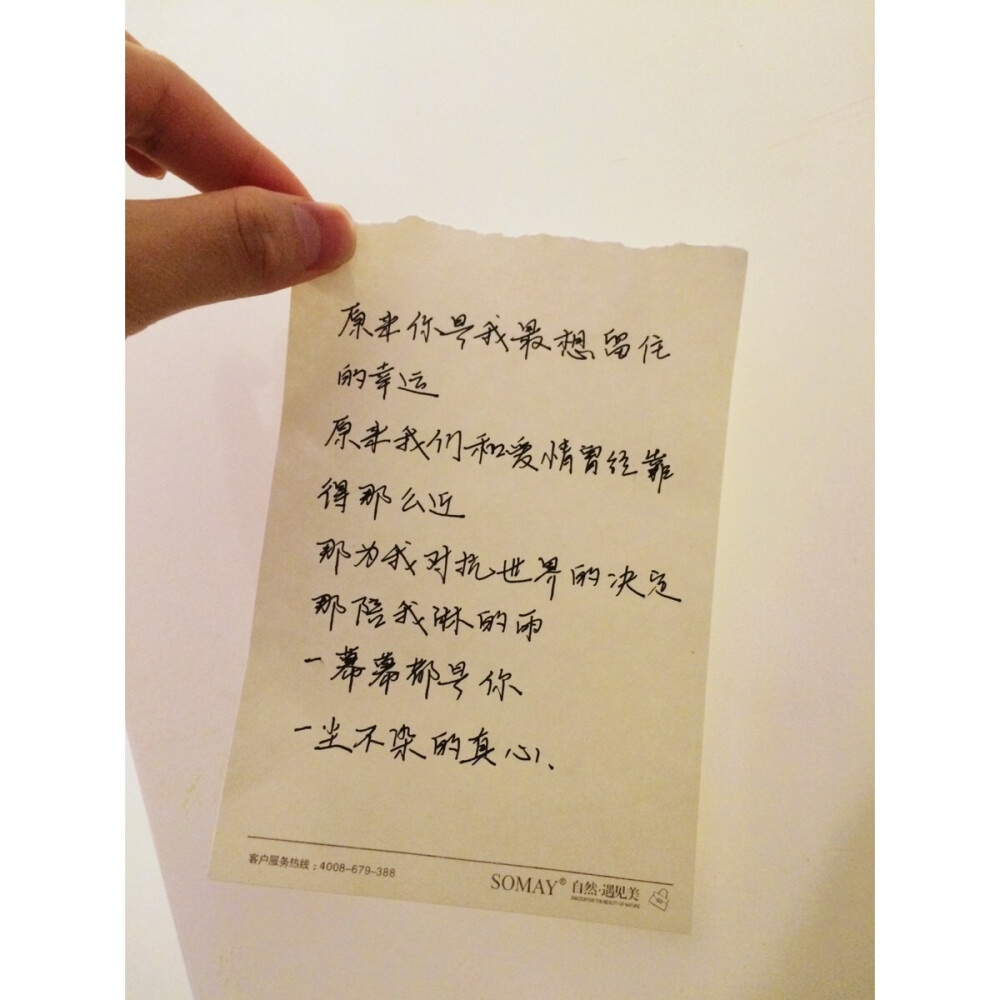 原来你是我最想留住
的幸运
原来我们和爱情曾经靠
得那么近
那为我对抗世界的决定
那陪我淋的雨
一幕幕都是你
一尘不染的真心、
客户服务热线：4008-679-388
SOMAY® 自然·遇见美